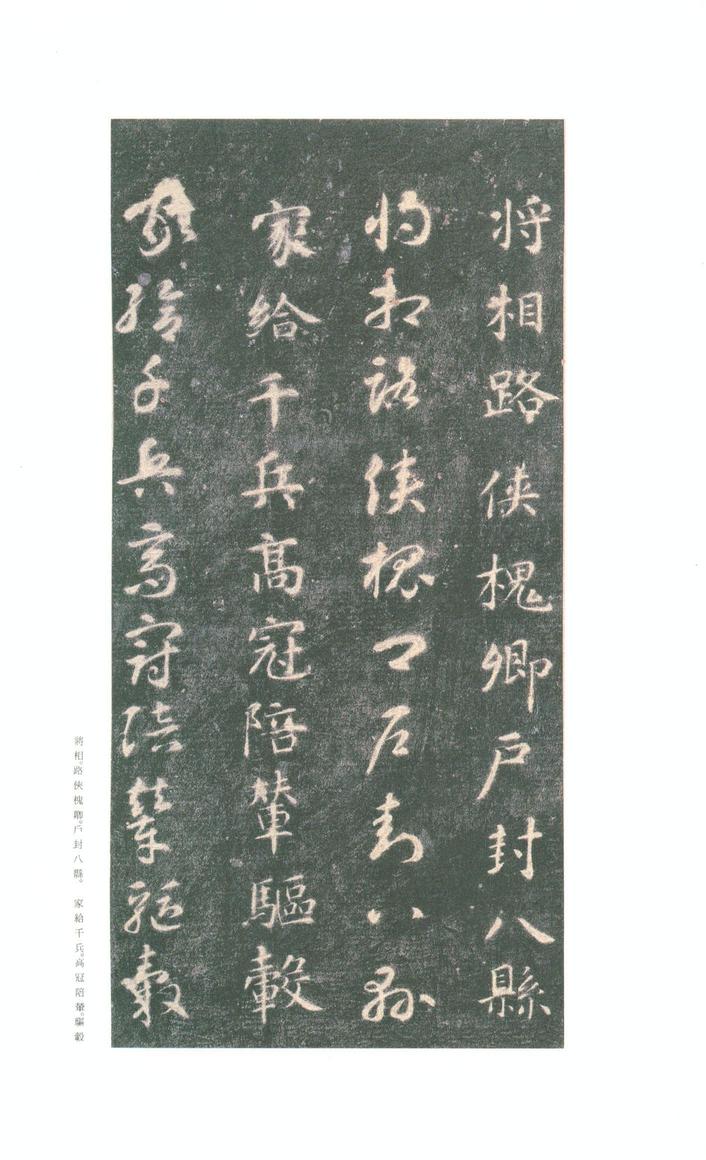 将相路侠槐卿户封八縣
将相路侠槐卿户封八縣
家給千兵高冠陪輦驅轂
家給千兵高冠陪輦驅轂
將相。路俠槐卿。戶封八縣。家給千兵。高冠陪輦。驅轂